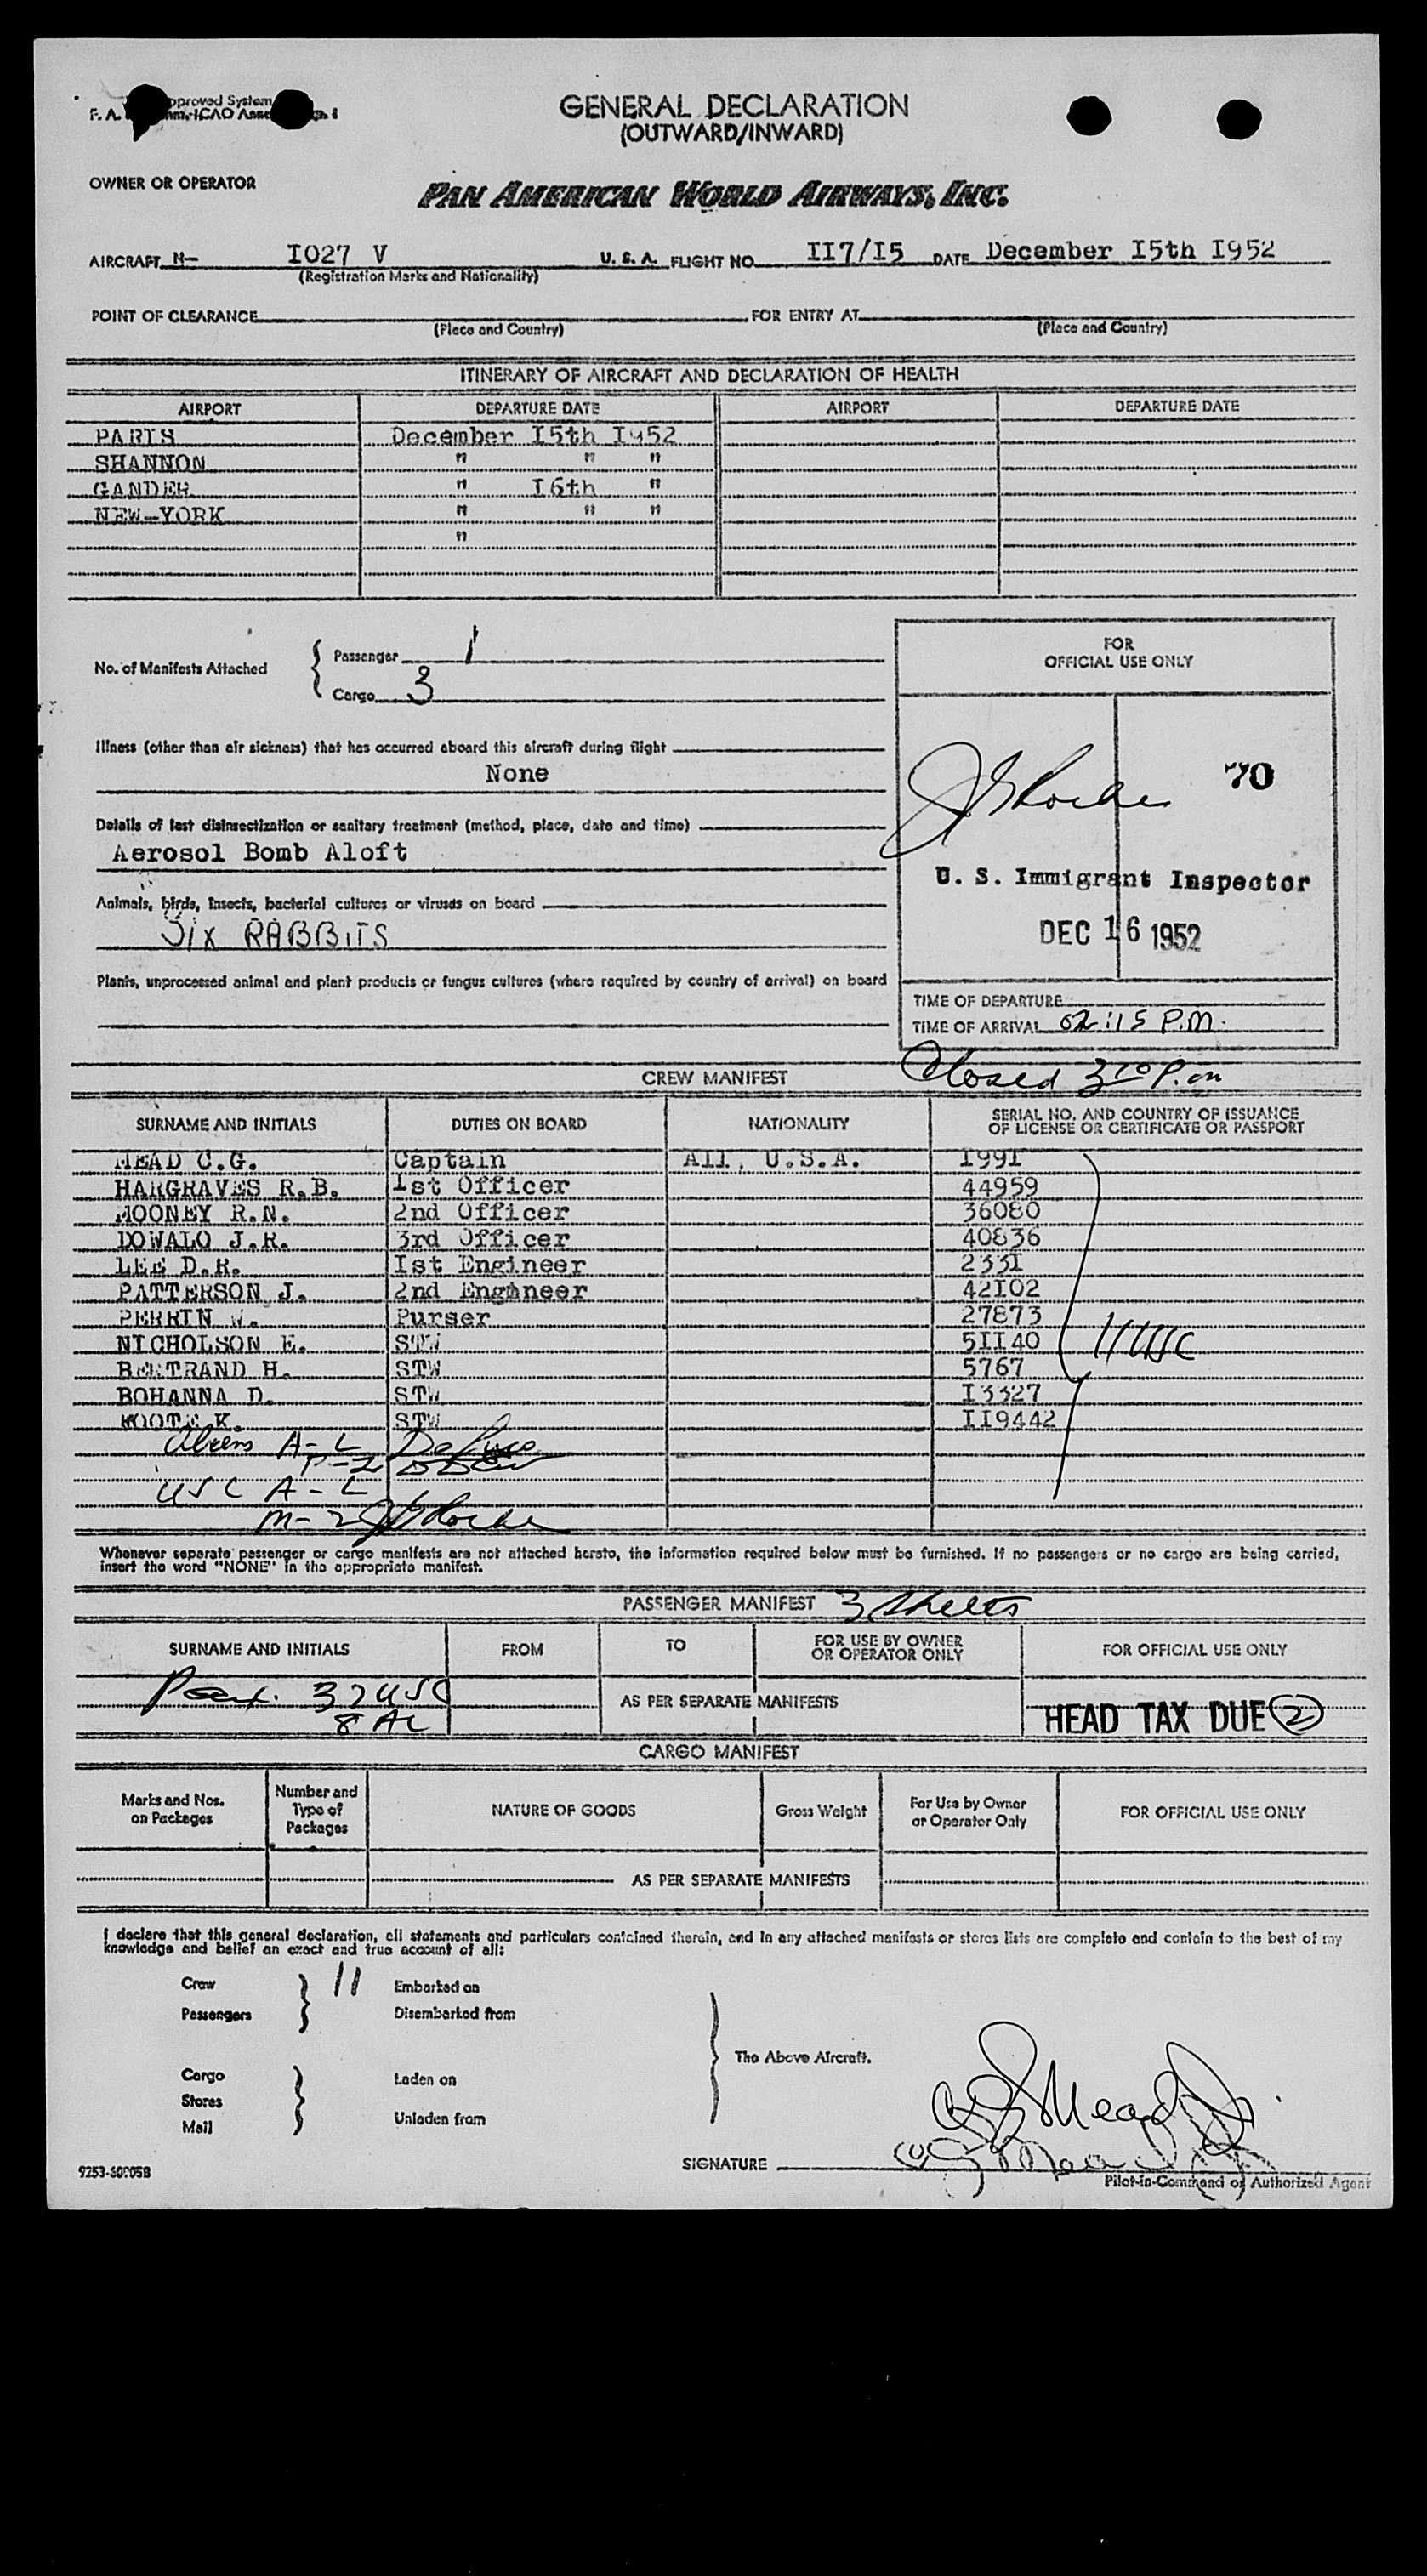 GENERAL DECLARATION
(OUTWARD/INWARD)
OWNER OR OPERATOR
PAN AMERICAN WORLD AIRWAYS, INC.
AIRCRAFT N- I027 V U. S. A. FLIGHT NO. II7/I5 DATE December I5th I952
(Registration Marks and Nationality)
POINT OF CLEARANCE FOR ENTRY AT
(Place and Country) (Place and Country)
ITINERARY OF AIRCRAFT AND DECLARATION OF HEALTH
AIRPORT DEPARTURE DATE AIRPORT DEPARTURE DATE
PARIS December I5th I952
SHANNON " " "
GANDER " I6th "
NEW-YORK " " "
"
No. of Manifests Attached { Passenger 1
Cargo 3
FOR
OFFICIAL USE ONLY
Illness (other than air sickness) that has occurred aboard this aircraft during flight
None
70
Details of last disinsectization or sanitary treatment (method, place, date and time)
Aerosol Bomb Aloft
U. S. Immigrant Inspector
Animals, birds, insects, bacterial cultures or viruses on board
Six RABBiTS
DEC 16 1952
Plants, unprocessed animal and plant products or fungus cultures (where required by country of arrival) on board
TIME OF DEPARTURE
TIME OF ARRIVAL 02:15 P.M.
Closed 3 10 P.m
CREW MANIFEST
SURNAME AND INITIALS DUTIES ON BOARD NATIONALITY SERIAL NO. AND COUNTRY OF ISSUANCE
OF LICENSE OR CERTIFICATE OR PASSPORT
MEAD C.G. Captain All. U.S.A. I99I
HARGRAVES R.B. Ist Officer 44959
MOONEY R.N. 2nd Officer 36080
DOWALO J.R. 3rd Officer 40836
LEE D.R. Ist Engineer 233I
PATTERSON J. 2nd Enghneer 42I02
PERRIN W. Purser 27873
NICHOLSON E. STW 5II40
BERTRAND H. STW 5767
BOHANNA D. STW I3327
FOOTE K. STW II9442
11 USC
Aliens A-L
P-2
USC A-L
M-2
Whenever separate passenger or cargo manifests are not attached hereto, the information required below must be furnished. If no passengers or no cargo are being carried,
insert the word "NONE" in the appropriate manifest.
PASSENGER MANIFEST 3 Sheets
SURNAME AND INITIALS FROM TO FOR USE BY OWNER
OR OPERATOR ONLY FOR OFFICIAL USE ONLY
Pax. 32 USC
8 AL
AS PER SEPARATE MANIFESTS
HEAD TAX DUE 2
CARGO MANIFEST
Marks and Nos.
on Packages
Number and
Type of
Packages
NATURE OF GOODS
Gross Weight
For Use by Owner
or Operator Only
FOR OFFICIAL USE ONLY
AS PER SEPARATE MANIFESTS
I declare that this general declaration, all statements and particulars contained therein, and in any attached manifests or stores lists are complete and contain to the best of my
knowledge and belief an exact and true account of all:
Crew 11 Embarked on
Passengers Disembarked from
The Above Aircraft.
Cargo Laden on
Stores
Mail Unladen from
SIGNATURE CG Mead Jr.
Pilot-in-Command or Authorized Agent